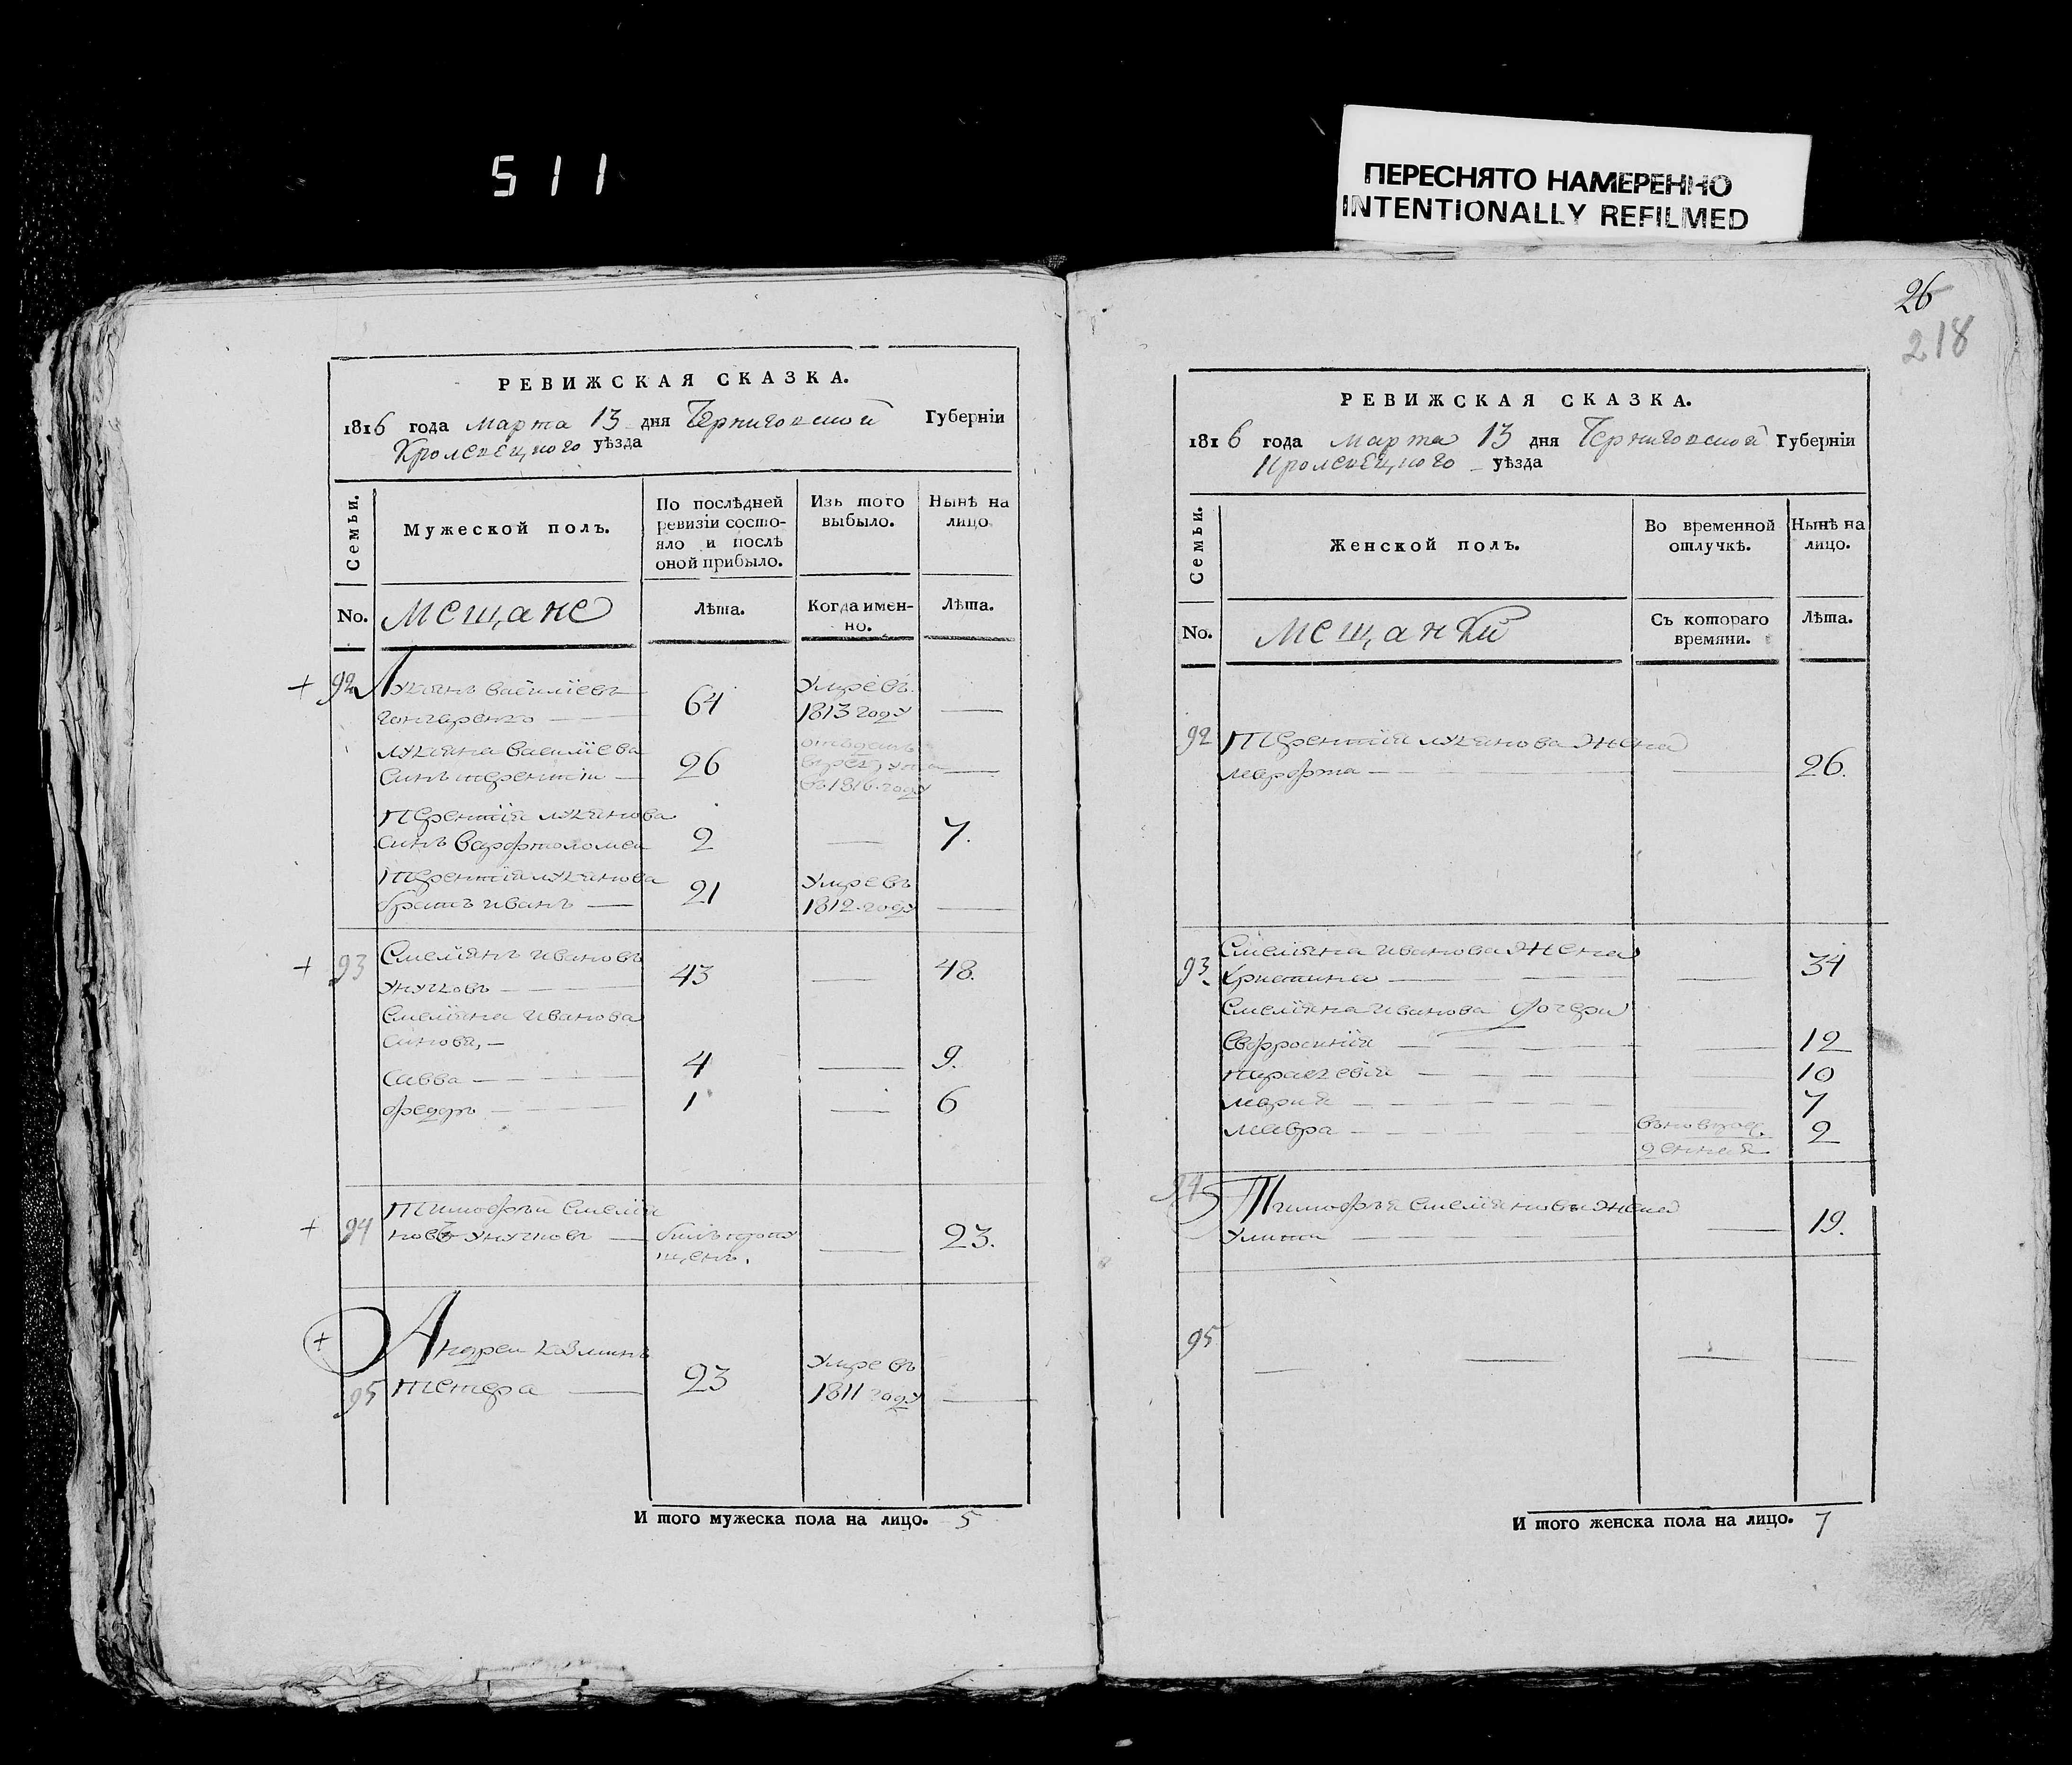 511
ПЕРЕСНЯТО НАМЕРЕННО
INTENTIONALLY REFILMED
26
218
РЕВИЖСКАЯ СКАЗКА.
1816 года марта 13 дня Черниговской Губерніи
Кролевецкого уѣзда
Семьи.
Мужеской полъ.
По послѣдней
ревизіи состо-
яло и послѣ
оной прибыло.
Изъ того
выбыло.
Нынѣ на
лицо.
No.
Мещане
Лѣта.
Когда имен-
но.
Лѣта.
92 Лукянъ Василіевъ
гончаренко 64
Умревъ
1813 году
лукяна Василіева
синъ терентіи 26
отъданъ
въ 1816 году
терентія лукянова
синъ Варфтоломеи 2 7.
терентія лукянова
братъ иванъ 21
Умревъ
1812 году
93 Смеліянъ ивановъ
унучковъ 43 48.
Смеліяна иванова
синови,
савва 4 9.
федоръ 1 6
94 тимофѣи Смелія
новъ унучковъ
билъ пропу
щенъ. 23.
95 Андреи козминъ
тетера 23
Умревъ
1811 году
И того мужеска пола на лицо. 5
РЕВИЖСКАЯ СКАЗКА.
1816 года марта 13 дня Черниговской Губерніи
Кролевецкого уѣзда
Семьи.
Женской полъ.
Во временной
отлучкѣ.
Нынѣ на
лицо.
No.
мещанки
Съ котораго
времяни.
Лѣта.
92 Терентія лукянова жена
марфта 26.
93 Смеліяна иванова жена
христина 34
Смеліяна иванова дочери
Евфросинія 12
параскевія 10
марія 7
мавра 2
94 Тимофѣя смеліянова жена
Улита 19.
95
И того женска пола на лицо. 7